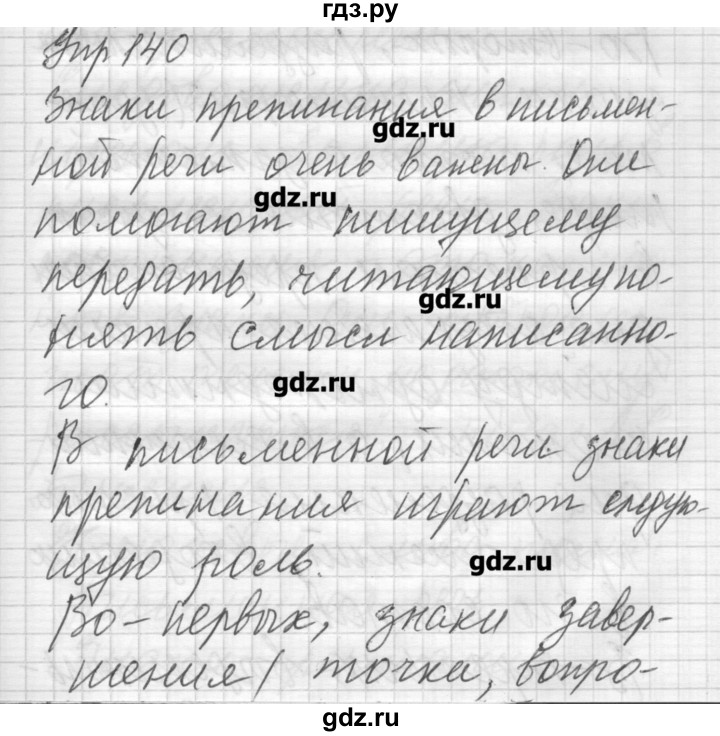 гдз.ру
Упр 140
Знаки препинания в письмен-
ной речи очень важны. Они
gdz.ru
помогают пишущему
gdz.ru
передать, читающему по-
gdz.ru
нять смысл написанно-
го.
gdz.ru
В письменной речи знаки
препинания играют следую-
щую роль.
gdz.ru
Во-первых, знаки завер-
шения/ точка, вопро-
gdz.ru